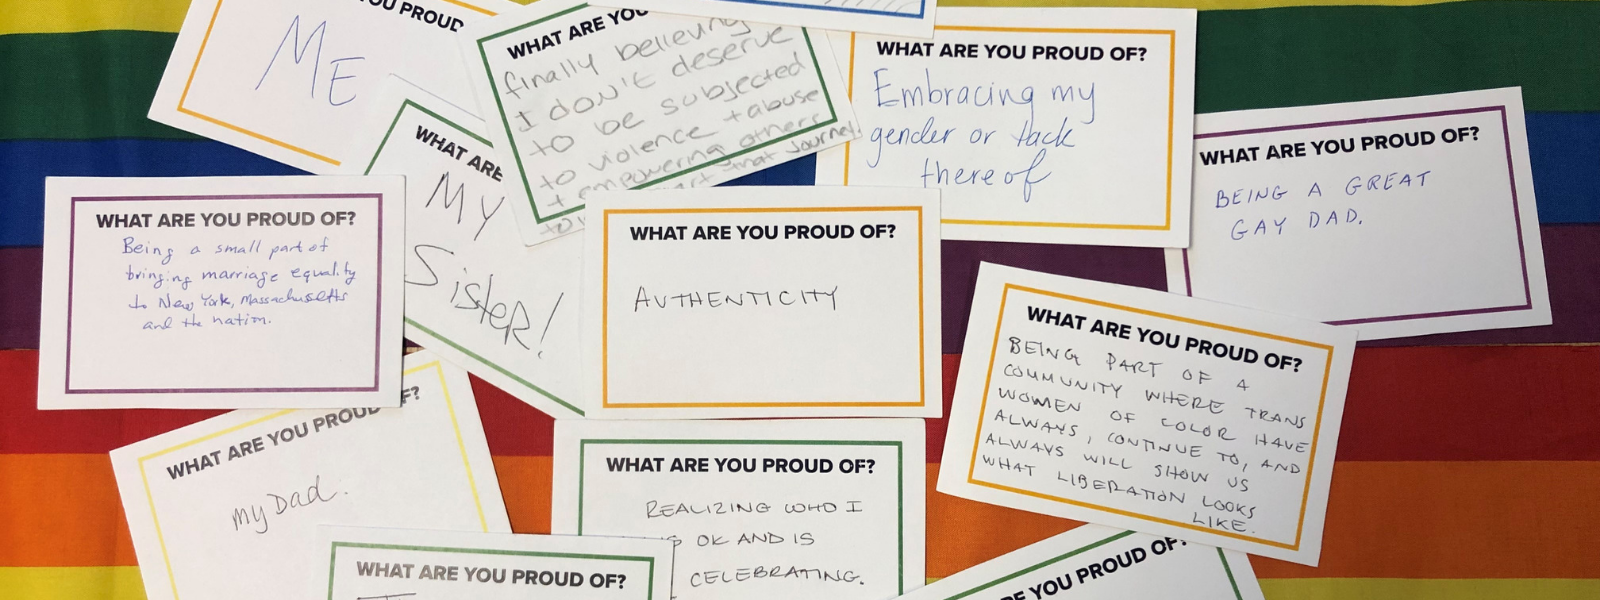 YOU PROUD
ME
WHAT ARE YOU
finally believing
I DON'T deserve
to be subjected
to violence + abuse
+ empowering others
that Journey.
WHAT ARE YOU PROUD OF?
Embracing my
gender or lack
there of
WHAT ARE YOU PROUD OF?
BEING A GREAT
GAY DAD.
WHAT ARE
MY
SISTER!
WHAT ARE YOU PROUD OF?
Being a small part of
bringing marriage equality
to New York, Massachusetts
and the nation.
WHAT ARE YOU PROUD OF?
AUTHENTICITY
WHAT ARE YOU PROUD OF?
BEING PART OF A
COMMUNITY WHERE TRANS
WOMEN OF COLOR HAVE
ALWAYS, CONTINUE TO, AND
ALWAYS WILL SHOW US
WHAT LIBERATION LOOKS
LIKE.
WHAT ARE YOU PROUD OF?
my Dad.
WHAT ARE YOU PROUD OF?
REALIZING WHO I
OK AND IS
CELEBRATING.
WHAT ARE YOU PROUD OF?
YOU PROUD OF?